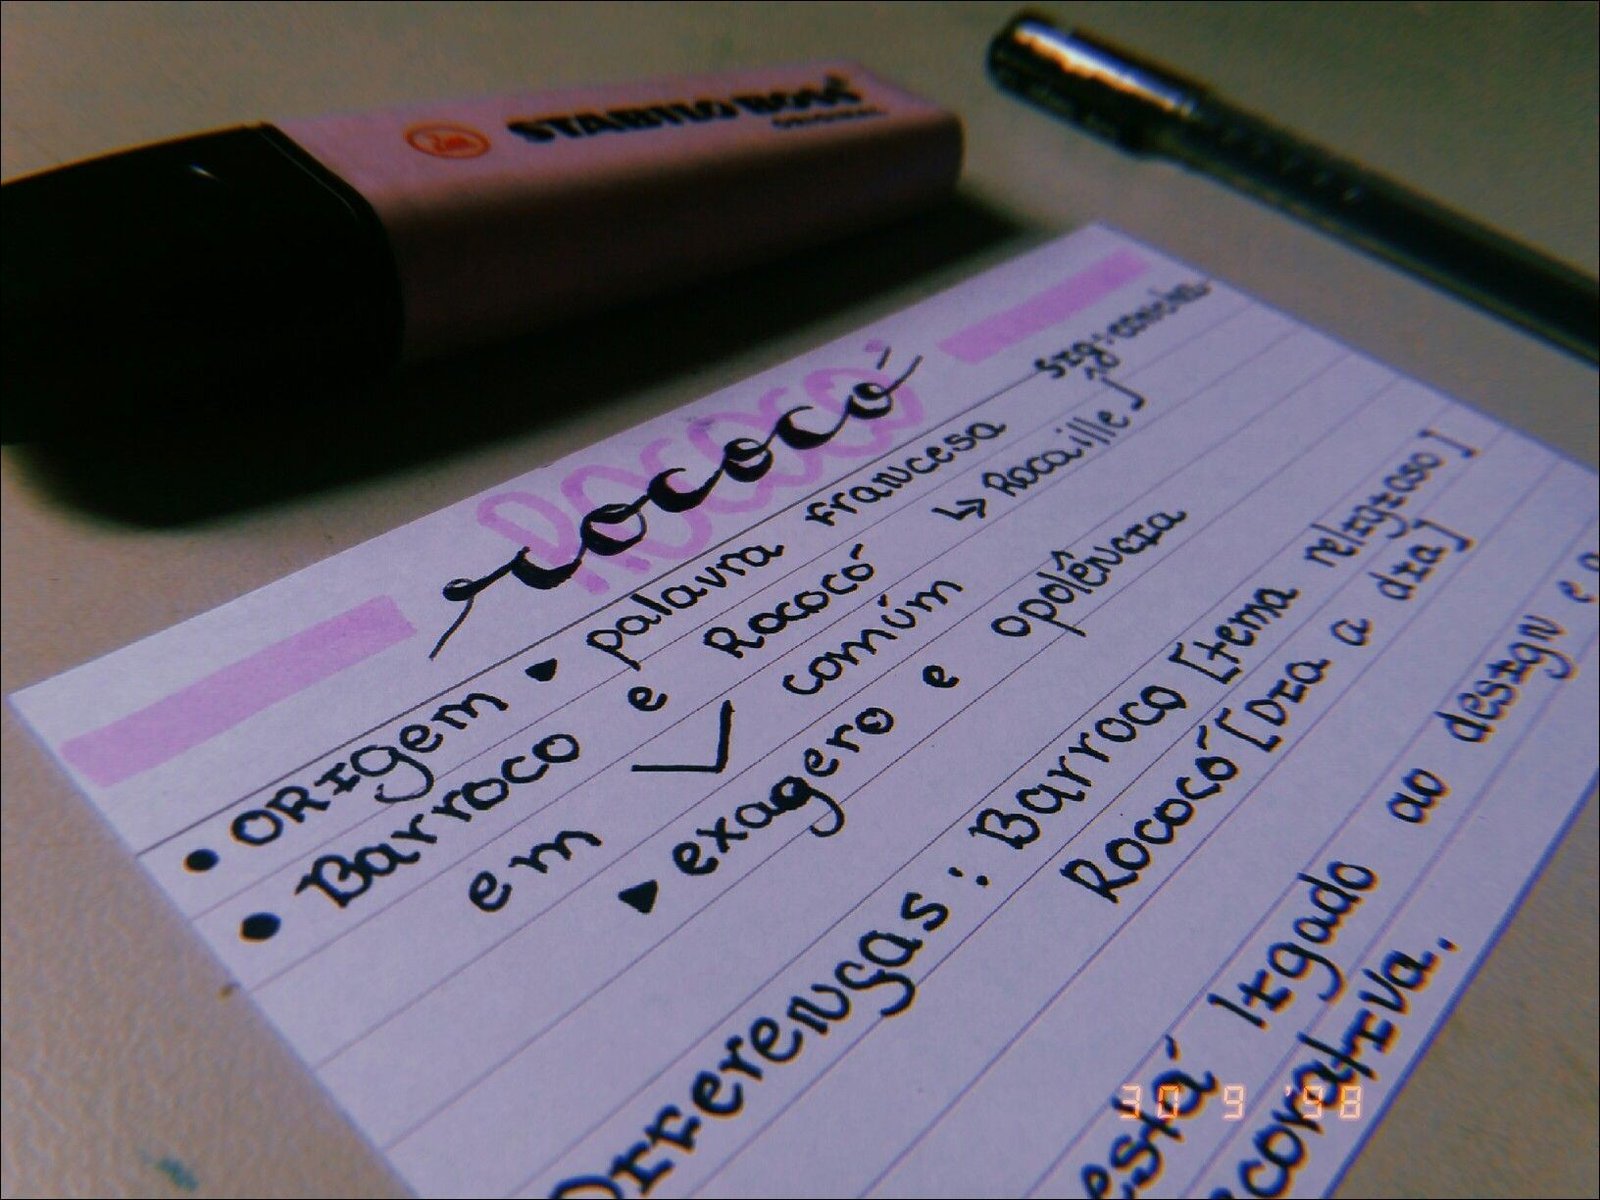 STABILO BOSS
ORIGINAL
ROCOCÓ
rococó
• ORIgem ▸ palavra francesa
sig: concha
↳ Rocaille]
• Barroco e Rococó
em comúm
▸ exagero e opolência
Diferenças: Barroco [tema religioso]
Rococó [Dia a dia]
está ligado ao design e a
corativa.
30 9 '98